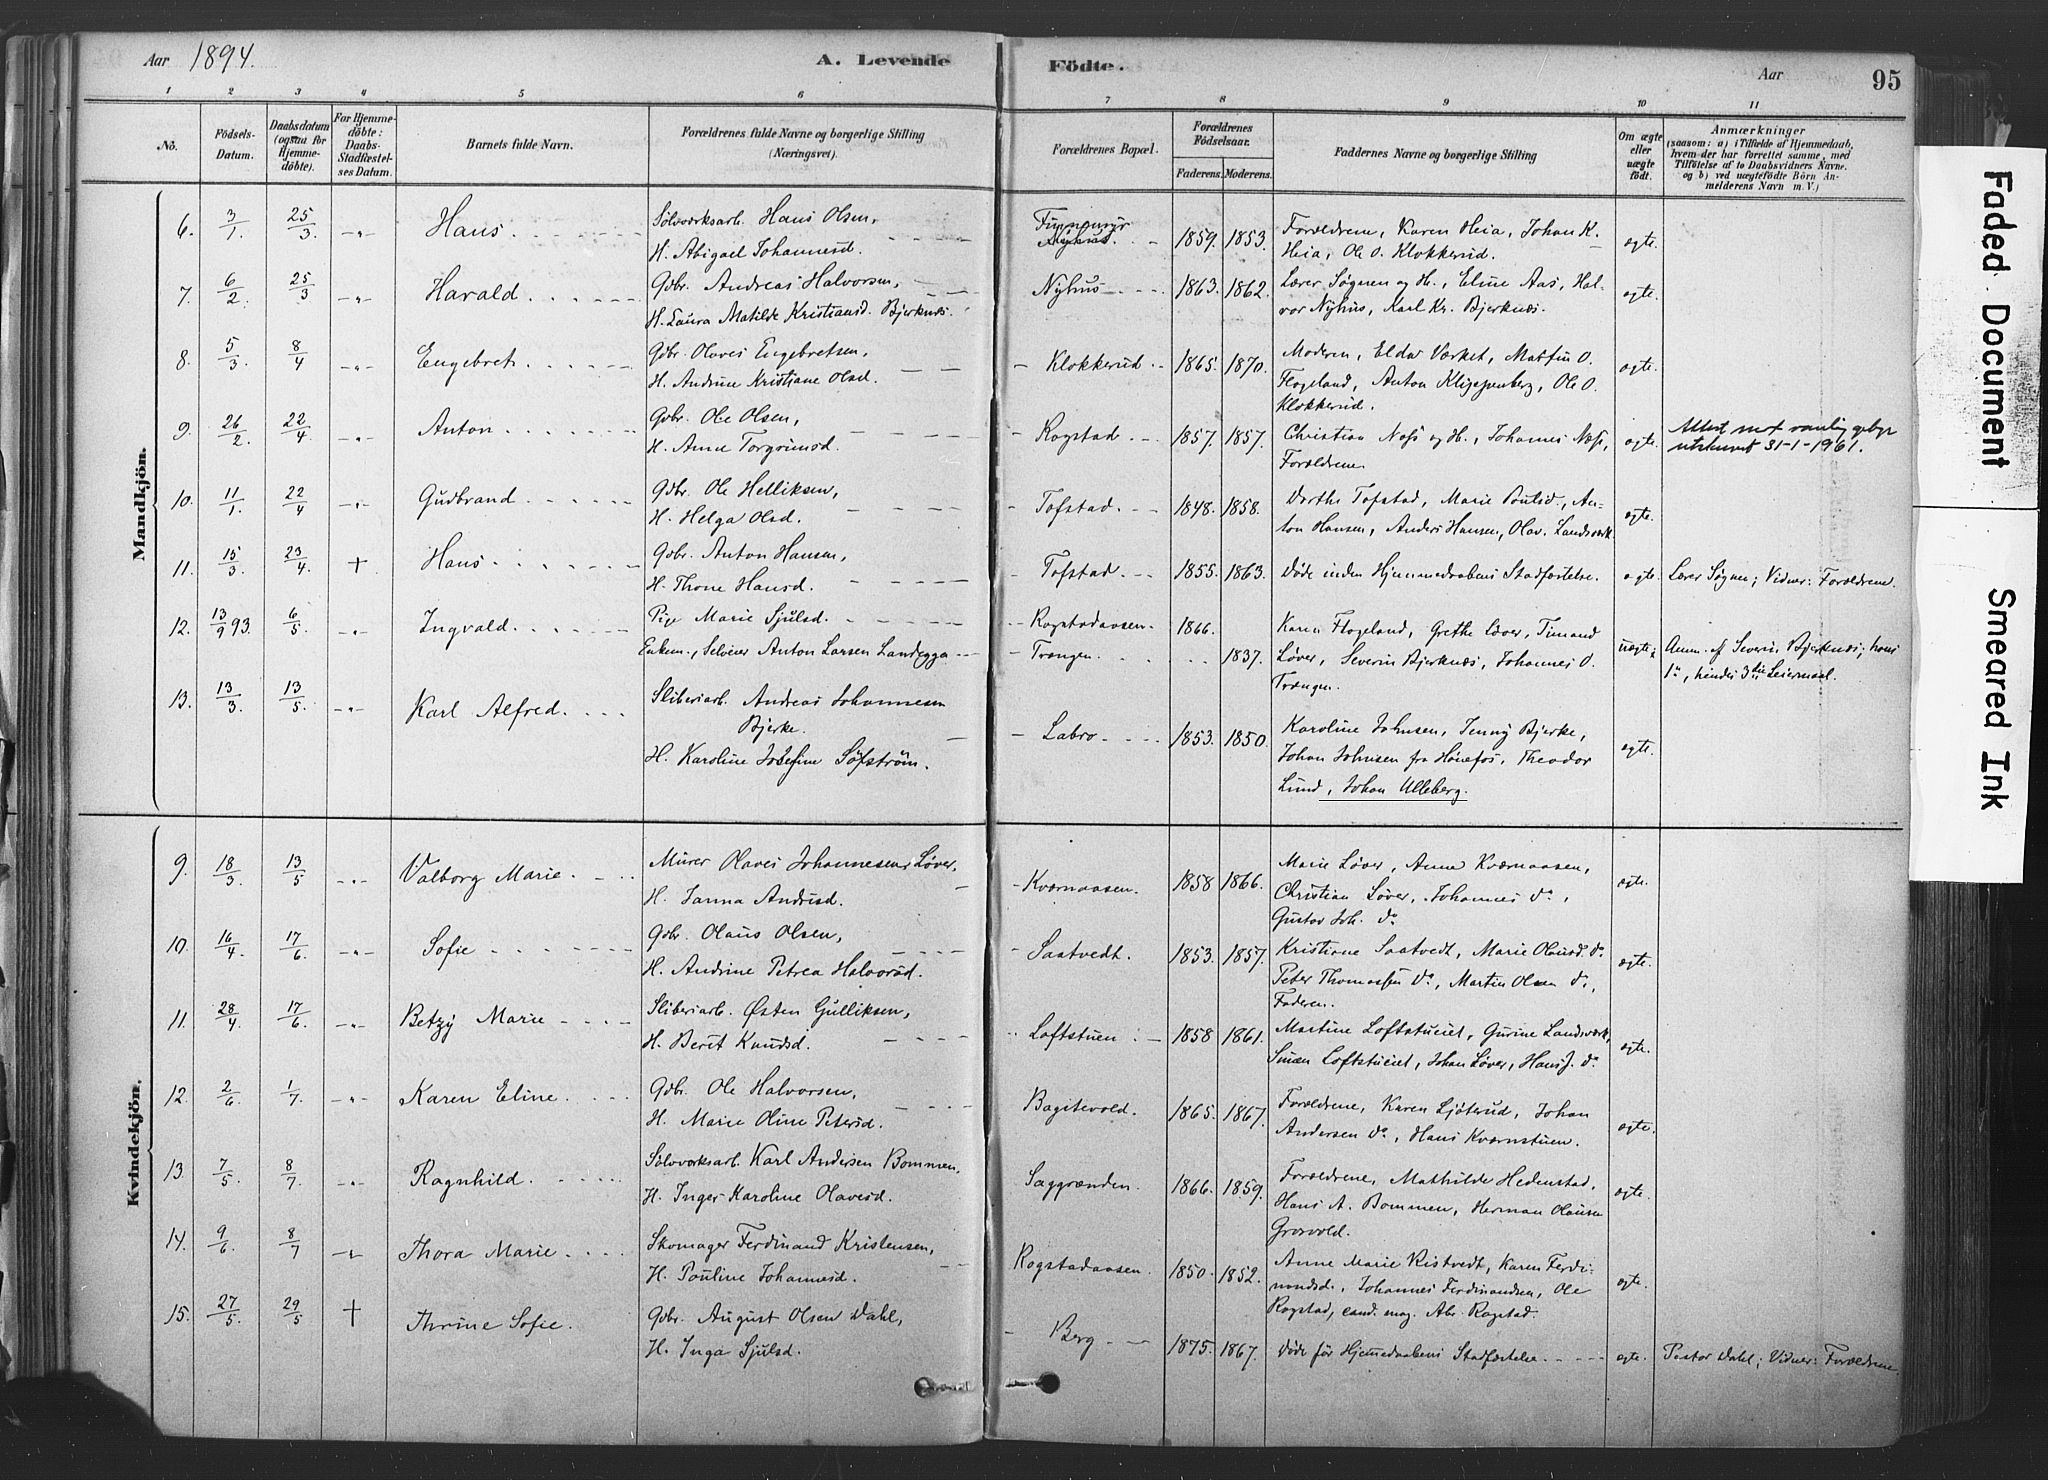 Aar 1894. A. Levende Födte. Aar 95
1 2 3 4 5 6 7 8 9 10 11
No. Födsels-Datum. Daabsdatum (ogsaa for Hjemmedöbte). For Hjemmedöbte: Daabs-Stadfæstelses Datum. Barnets fulde Navn. Forældrenes fulde Navne og borgerlige Stilling (Næringsvei). Forældrenes Bopæl. Forældrenes Födselsaar. Faderens. Moderens. Faddernes Navne og borgerlige Stilling Om ægte eller uægte födt. Anmærkninger (saasom: a) i Tilfælde af Hjemmedaab, hvem der har forrettet samme, med Tilföielse af to Daabsvidners Navne, og b) ved uægtefödte Börn Anmelderens Navn m. V.)
Mandkjön.
6. 3/1 25/3 -„- Hans Sølvværksarb. Hans Olsen, Nyhus. 1859. 1853. Forældrene, Karen Heia, Johan K. ægte.
H. Abigael Johannesd. Heia, Ole O. Klokkerud.
7. 6/2 25/3 -„- Harald Gdbr. Andreas Halvorsen, Nyhus 1863. 1862. Lærer Søgnen og H., Eline Aas, Hal- ægte.
H. Laura Matilde Kristiansd. Bjerknæs. vor Nyhus, Karl Kr. Bjerknæs.
8. 5/3 8/4 -„- Engebret Gdbr. Olaves Engebretsen, Klokkerud 1865. 1870. Moderen, Elda Værket, Martin O. ægte.
H. Andrine Kristiane Olsd. Flogeland, Anton Klippenberg, Ole O.
Klokkerud.
9. 26/2 22/4 -„- Anton Gdbr. Ole Olsen, Rogstad 1857. 1857. Christian Næss og H., Johannes Næss, ægte.
H. Anne Torgrimsd. Forældrene. utskrevet 31-1-1961.
10. 11/1 22/4 -„- Gudbrand Gdbr. Ole Helliksen, Tofstad. 1848. 1858. Dorthe Tofstad, Marie Poulsd., An- ægte.
H. Helga Olsd. ton Hansen, Anders Hansen, Olav. Landsværk
11. 15/3 23/4 + Hans Gdbr. Anton Hansen, Tofstad 1855. 1863. Døde inden Hjemmedaabens Stadfæstelse. ægte. Lærer Søgnen; Vidner: Forældrene.
H. Thone Hansd.
12. 13/9 93. 6/5 -„- Ingvald Pige Marie Sjulsd. Rogstadaasen. 1866. Karen Flogeland, Grethe Løver, Timand uægte; Anm. af Severin Bjerknæs; hans
Enkem., Selveier Anton Larsen Landegga Trængen 1837. Løver, Severin Bjerknæs, Johannes O. 1ste, hendes 3die Leiermaal.
Trængen.
13. 13/3 13/5 -„- Karl Alfred. Sliberiarb. Andreas Johannesen
Bjerke. Labro 1853. 1850. Karoline Johnsen, Jenny Bjerke, ægte.
H. Karoline Josefine Söfström. Johan Johnsen fra Hønefos, Theodor
Lund, Johan Ulleberg.
Kvindekjön.
9. 18/3 13/5 -„- Valborg Marie Murer Olaves Johannesen Løver, Kværnaasen. 1858 1866. Marie Løver, Anne Kværnaasen, ægte.
H. Janna Andrisd. Christian Løver, Johannes do,
Gustav Joh. do
10. 16/4 17/6 -„- Sofie Gdbr. Olaus Olsen, Saatvedt. 1853. 1857. Kristiane Saatvedt, Marie Olausd. do. ægte.
H. Andrine Petrea Halvorsd. Peter Thomassen do, Martin Olsen do,
Faderen.
11. 28/4 17/6 -„- Betzy Marie Sliberiarb. Østen Gulliksen, Loftstuen 1858 1861. Martine Loftstueiet, Gurine Landsværk, ægte.
H. Berit Knudsd. Simen Loftstueiet, Johan Løver, Hans J. do
12. 2/6 1/7 -„- Karen Eline Gdbr. Ole Halvorsen, Bagstevold. 1865. 1867. Forældrene, Karen Ljøterud, Johan ægte.
H. Marie Oline Petersd. Andersen do, Hans Kværnstuen.
13. 7/5 8/7 -„- Ragnhild Sølvværksarb. Karl Andersen Bommen. Saggrænden. 1866. 1859. Forældrene, Mathilde Hedenstad, ægte.
H. Inger Karoline Olavesd. Hans A. Bommen, Herman Olausen
Grosvold.
14. 9/6 8/7 -„- Thora Marie Skomager Ferdinand Kristensen, Rogstadaasen. 1850. 1852. Anne Marie Kistvedt, Karen Ferdi- ægte.
H. Pouline Johannesd. nandsd., Johannes Ferdinandsen, Ole
Rogstad, cand. mag. Abr. Rogstad.
15. 27/5 29/5 + Thrine Sofie. Gdbr. August Olsen Dahl, Berg 1875. 1867. Døde før Hjemmedaabens Stadfæstelse ægte. Pastor Dahl; Vidner: Forældrene
H. Inga Sjulsd.
Faded Document
Smeared Ink